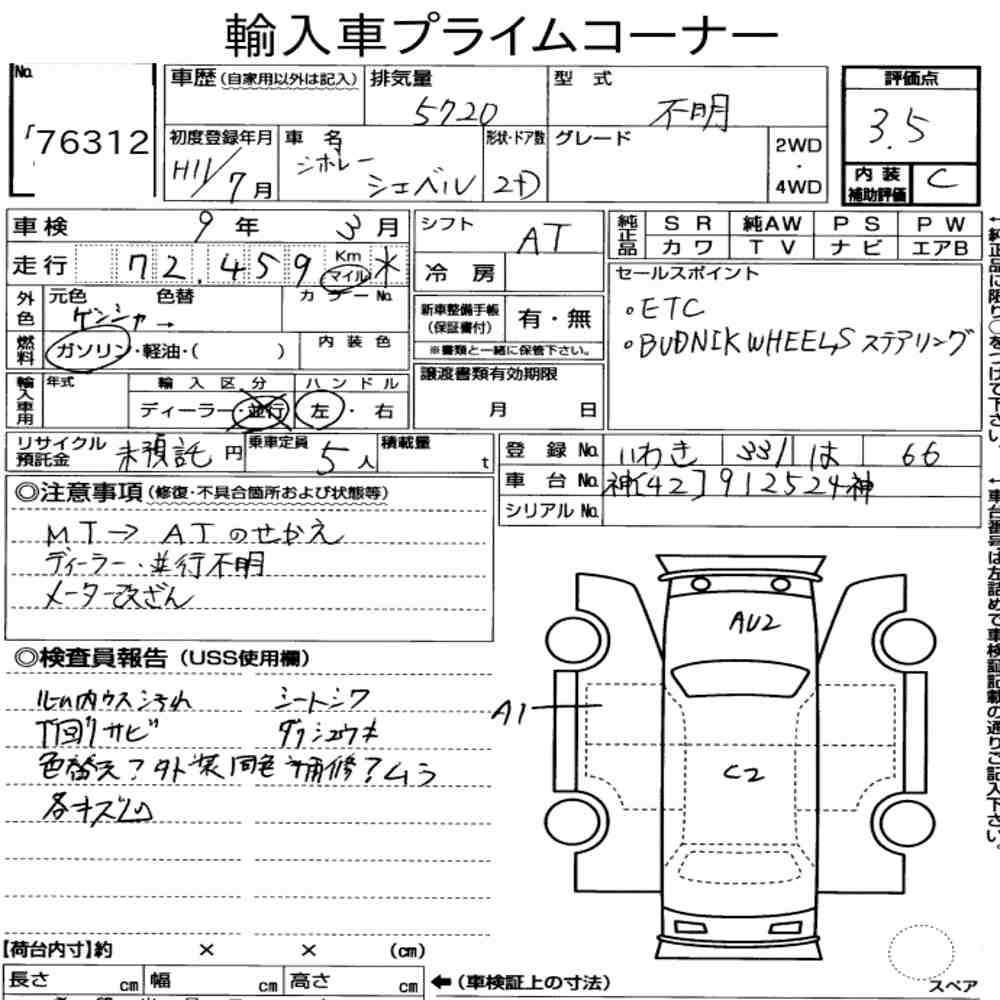 輸入車プライムコーナー
No.
76312
車歴(自家用以外は記入)
排気量
5720
型式
不明
評価点
3.5
初度登録年月
H11/7月
車名
シボレー
シェベル
形状・ドア数
2D
グレード
2WD
・
4WD
内装
補助評価
C
車検 9年 3月
シフト
AT
純正品
SR 純AW PS PW
カワ TV ナビ エアB
走行 72,459 Km マイル
冷房
セールスポイント
・ETC
・BUDNIK WHEELS ステアリング
外色
元色 色替 カラーNo.
ゲンシャ→
新車整備手帳
(保証書付)
有・無
※書類と一緒に保管下さい。
燃料
ガソリン・軽油・( )
内装色
譲渡書類有効期限
月 日
輸入車用
年式
輸入区分
ディーラー・並行
ハンドル
左・右
リサイクル
預託金
未預託 円
乗車定員
5人
積載量
t
登録No. いわき 331 は 66
車台No. 神[42]912524神
シリアルNo.
◎注意事項(修復・不具合箇所および状態等)
MT→ATのせかえ
ディーラー・並行不明
メーター改ざん
◎検査員報告(USS使用欄)
シートシワ
下回りサビ
色替え?外装同色補修?ムラ
各キズ凹
AU2
A1
C2
【荷台内寸】約 × × (cm)
長さ cm 幅 cm 高さ cm
←(車検証上の寸法)
スペア
←純正品に限り○をつけて下さい。
←車台番号は左詰めで車検証記載の通りご記入下さい。